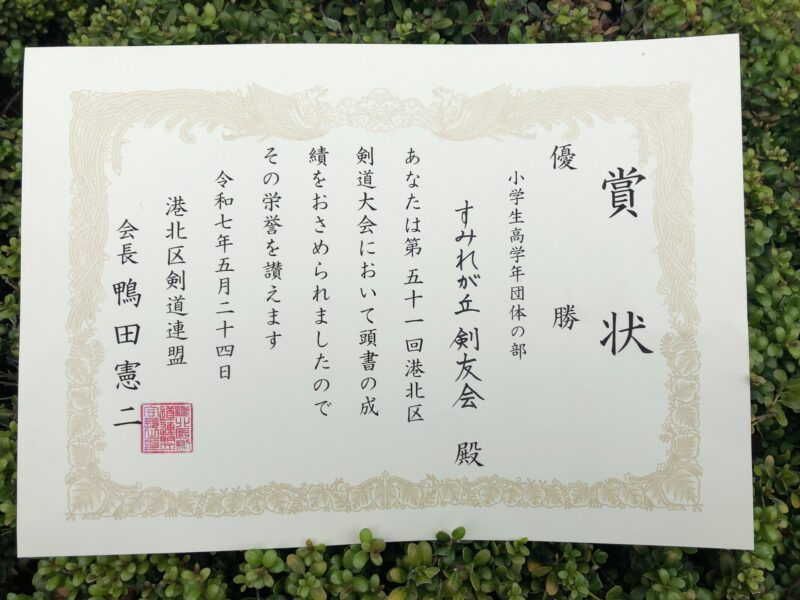 賞状
優勝
小学生高学年団体の部
すみれが丘剣友会 殿
あなたは第五十一回港北区
剣道大会において頭書の成
績をおさめられましたので
その栄誉を讃えます
令和七年五月二十四日
港北区剣道連盟
会長 鴨田憲二